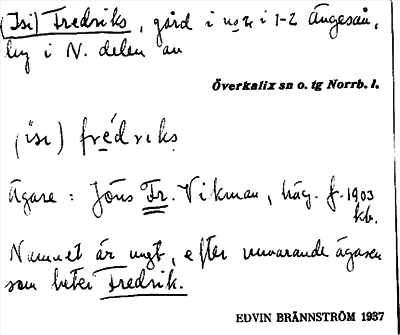 (Isi) Fredriks, gård i nr 2 i 1-2 Ängesån,
by i N. delen av
Överkalix sn o. tg Norrb. l.
(isı) frédrıks
Ägare: Jöns Fr. Vikman, häg. f. 1903
kb.
Namnet är ungt, efter nuvarande ägaren
som heter Fredrik.
EDVIN BRÄNNSTRÖM 1937